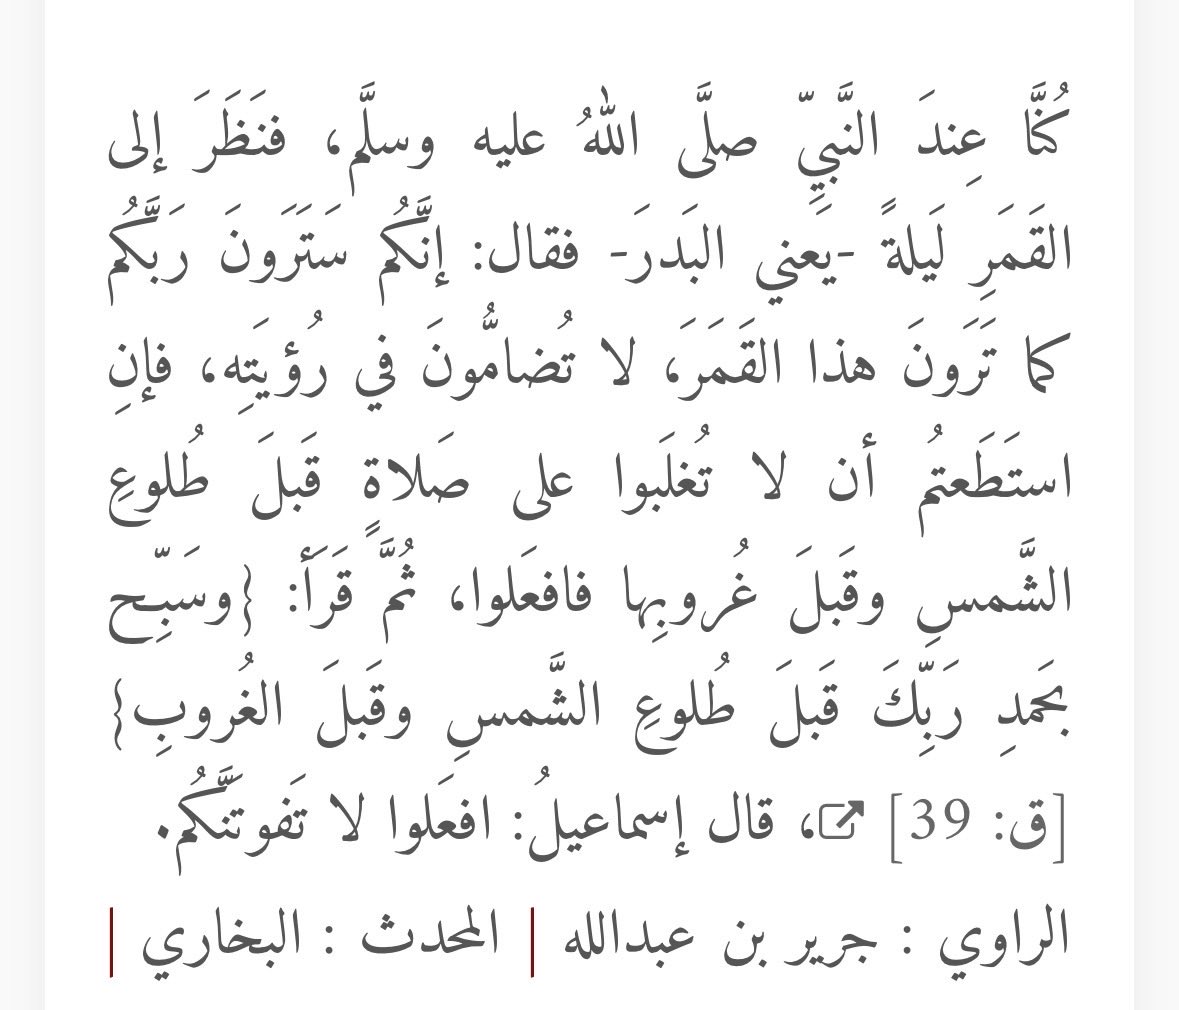 كُنَّا عِندَ النَّبيِّ صلَّى اللهُ عليه وسلَّم، فنَظَرَ إلى
القَمَرِ لَيلةً -يَعني البَدرَ- فقال: إنَّكُم سَتَرَونَ رَبَّكُم
كما تَرَونَ هذا القَمَرَ، لا تُضامُّونَ في رُؤيَتِه، فإنِ
استَطَعتُم أن لا تُغلَبوا على صَلاةٍ قَبلَ طُلوعِ
الشَّمسِ وقَبلَ غُروبِها فافعَلوا، ثُمَّ قَرَأَ: {وسَبِّح
بحَمدِ رَبِّكَ قَبلَ طُلوعِ الشَّمسِ وقَبلَ الغُروبِ}
[ق: 39]، قال إسماعيلُ: افعَلوا لا تَفوتَنَّكُم.
الراوي : جرير بن عبدالله | المحدث : البخاري |